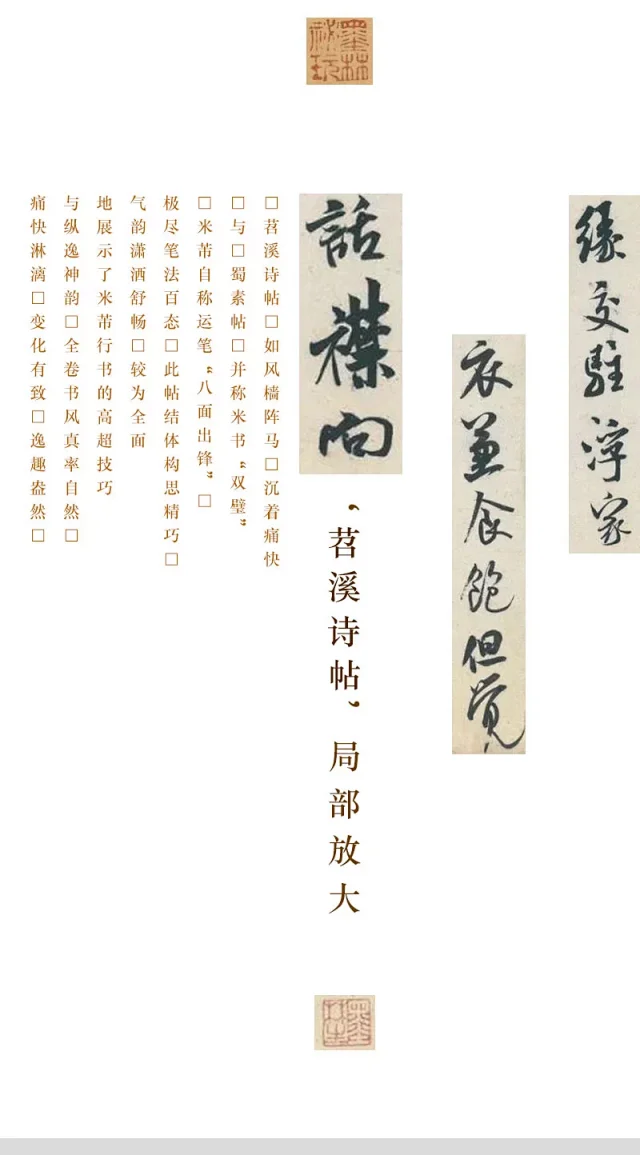 墨林祕玩
緣交駐浮家
衣兼食飽但覺
話襟向
‘苕溪诗帖’局部放大
□苕溪诗帖□如风樯阵马□沉着痛快
□与□蜀素帖□并称米书“双璧”
□米芾自称运笔“八面出锋”□
极尽笔法百态□此帖结体构思精巧□
气韵潇洒舒畅□较为全面
地展示了米芾行书的高超技巧
与纵逸神韵□全卷书风真率自然□
痛快淋漓□变化有致□逸趣盎然□